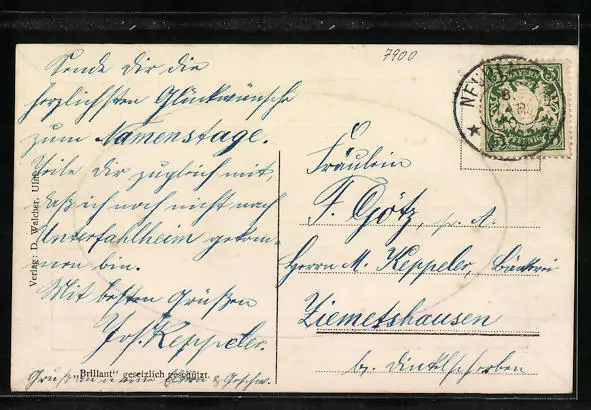 7900
Sende Dir die
herzlichsten Glückwünsche
zum Namenstage.
Teile Dir zugleich mit,
daß ich noch nicht nach
Unterfahlheim gekom-
men bin.
Mit besten Grüßen
Jos. Keppeler.
Verlag: D. Walcher, Ulm.
"Brillant" gesetzlich geschützt.
BAYERN
5 5
Fräulein
F. Götz, p. A.
Herrn M. Keppeler, Bäckerei
Ziemetshausen
bz. Dinkelscherben